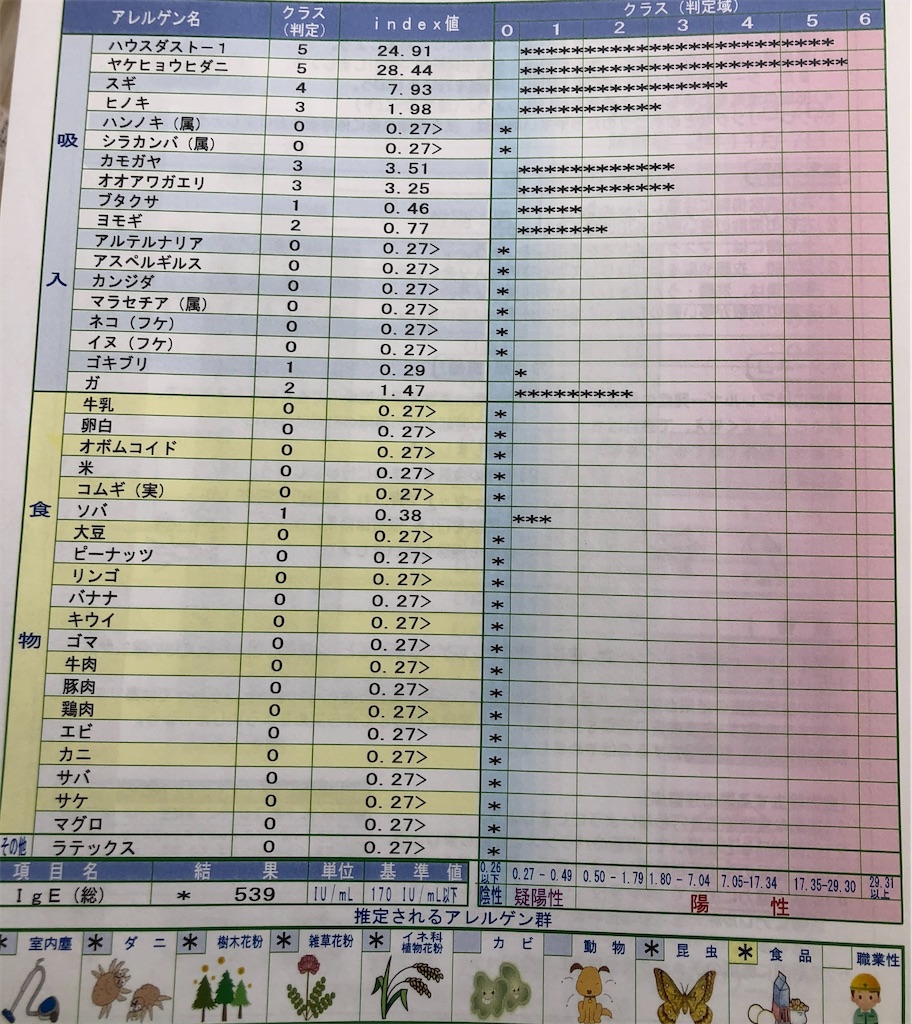 アレルゲン名 クラス(判定) index値 クラス(判定域)
0 1 2 3 4 5 6
吸入
ハウスダスト-1 5 24.91 ************************
ヤケヒョウヒダニ 5 28.44 *************************
スギ 4 7.93 ****************
ヒノキ 3 1.98 ***********
ハンノキ(属) 0 0.27> *
シラカンバ(属) 0 0.27> *
カモガヤ 3 3.51 ************
オオアワガエリ 3 3.25 ************
ブタクサ 1 0.46 *****
ヨモギ 2 0.77 *******
アルテルナリア 0 0.27> *
アスペルギルス 0 0.27> *
カンジダ 0 0.27> *
マラセチア(属) 0 0.27> *
ネコ(フケ) 0 0.27> *
イヌ(フケ) 0 0.27> *
ゴキブリ 1 0.29 *
ガ 2 1.47 *********
食物
牛乳 0 0.27> *
卵白 0 0.27> *
オボムコイド 0 0.27> *
米 0 0.27> *
コムギ(実) 0 0.27> *
ソバ 1 0.38 ***
大豆 0 0.27> *
ピーナッツ 0 0.27> *
リンゴ 0 0.27> *
バナナ 0 0.27> *
キウイ 0 0.27> *
ゴマ 0 0.27> *
牛肉 0 0.27> *
豚肉 0 0.27> *
鶏肉 0 0.27> *
エビ 0 0.27> *
カニ 0 0.27> *
サバ 0 0.27> *
サケ 0 0.27> *
マグロ 0 0.27> *
その他 ラテックス 0 0.27> *
項目名 結果 単位 基準値
IgE(総) * 539 IU/mL 170 IU/mL以下
0.26以下 0.27-0.49 0.50-1.79 1.80-7.04 7.05-17.34 17.35-29.30 29.31以上
陰性 疑陽性 陽性
推定されるアレルゲン群
* 室内塵 * ダニ * 樹木花粉 * 雑草花粉 * イネ科植物花粉 カビ 動物 * 昆虫 * 食品 職業性